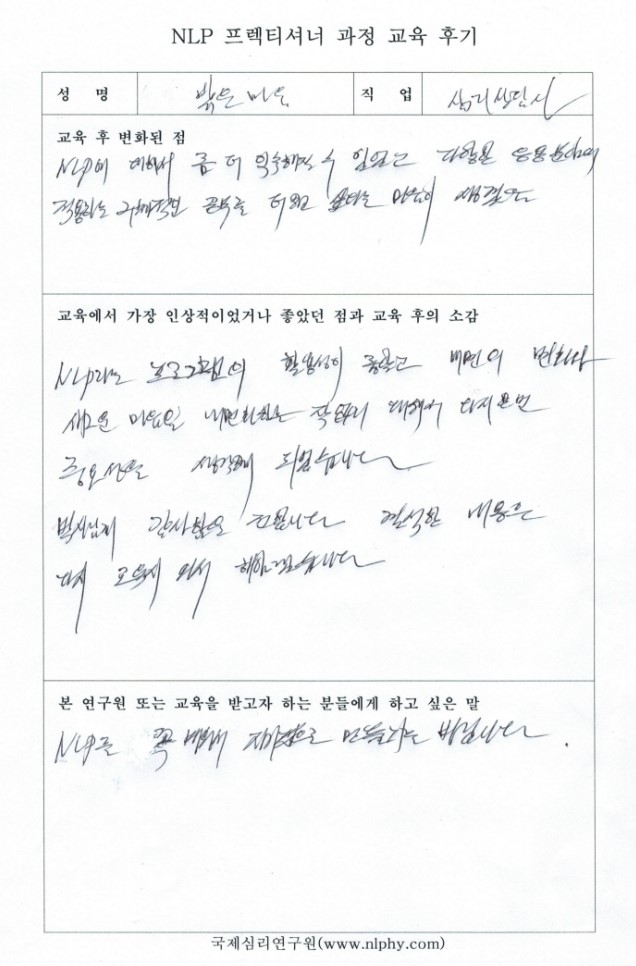 NLP 프렉티셔너 과정 교육 후기
성 명 밝은 마음 직 업 심리상담사
교육 후 변화된 점
NLP에 대해서 좀 더 익숙해질 수 있었고 다양한 응용분야에
적용하는 구체적인 공부를 더하고 싶다는 마음이 생겼다
교육에서 가장 인상적이었거나 좋았던 점과 교육 후의 소감
NLP라는 프로그램의 활용성이 좋았고 내면의 변화와
새로운 마음을 내면화하는 작업에 대해서 다시 한번
중요성을 생각하게 되었습니다
박사님께 감사함을 전합니다 결석한 내용은
다시 와서 하겠습니다
본 연구원 또는 교육을 받고자 하는 분들에게 하고 싶은 말
NLP를 꼭 자기것으로 만들기를 바랍니다.
국제심리연구원(www.nlphy.com)